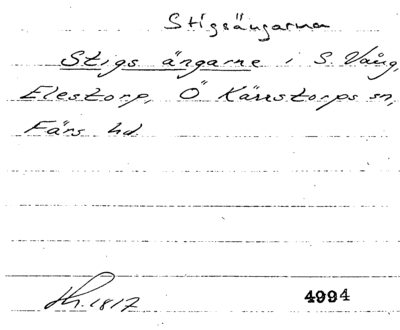 Stigsängarna
Stigs ängarne i S. Vång,
Elestorp, Ö Kärrstorps sn,
Färs hd
1817
4994